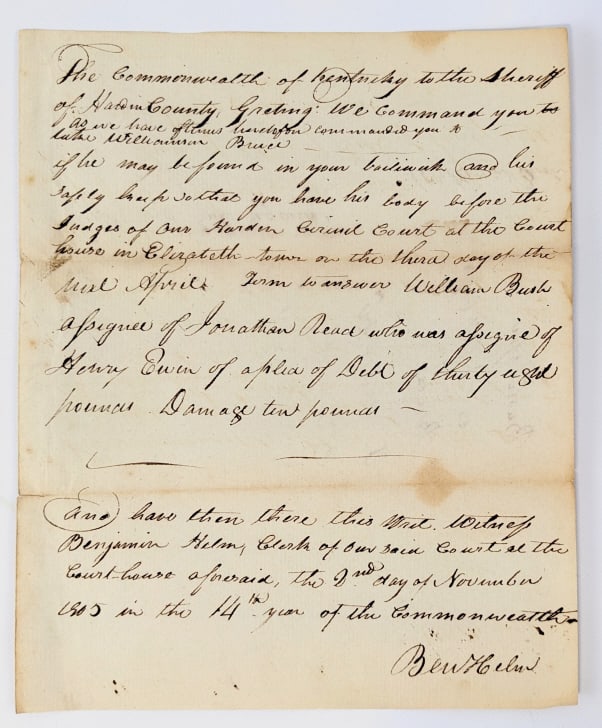 The Commonwealth of Kentucky to the Sheriff
of Hardin County, Greting: We Command you to
as we have oftimes heretofore commanded you to
take Williamson Bruce
if he may be found in your bailiwick and him
safely keep so that you have his body before the
Judges of our Hardin Circuit Court at the Court
house in Elizabeth-town on the third day of the
next April Term to answer William Bush
assignee of Jonathan Read who was assigne of
Henry Ewin of a plea of Debt of thirty eight
pounds Damage ten pounds —
and have then there this Writ. Witness
Benjamin Helm, Clerk of our said Court at the
Court-house aforesaid, the 2nd day of November
1805 in the 14th year of the Commonwealth.
Ben Helm